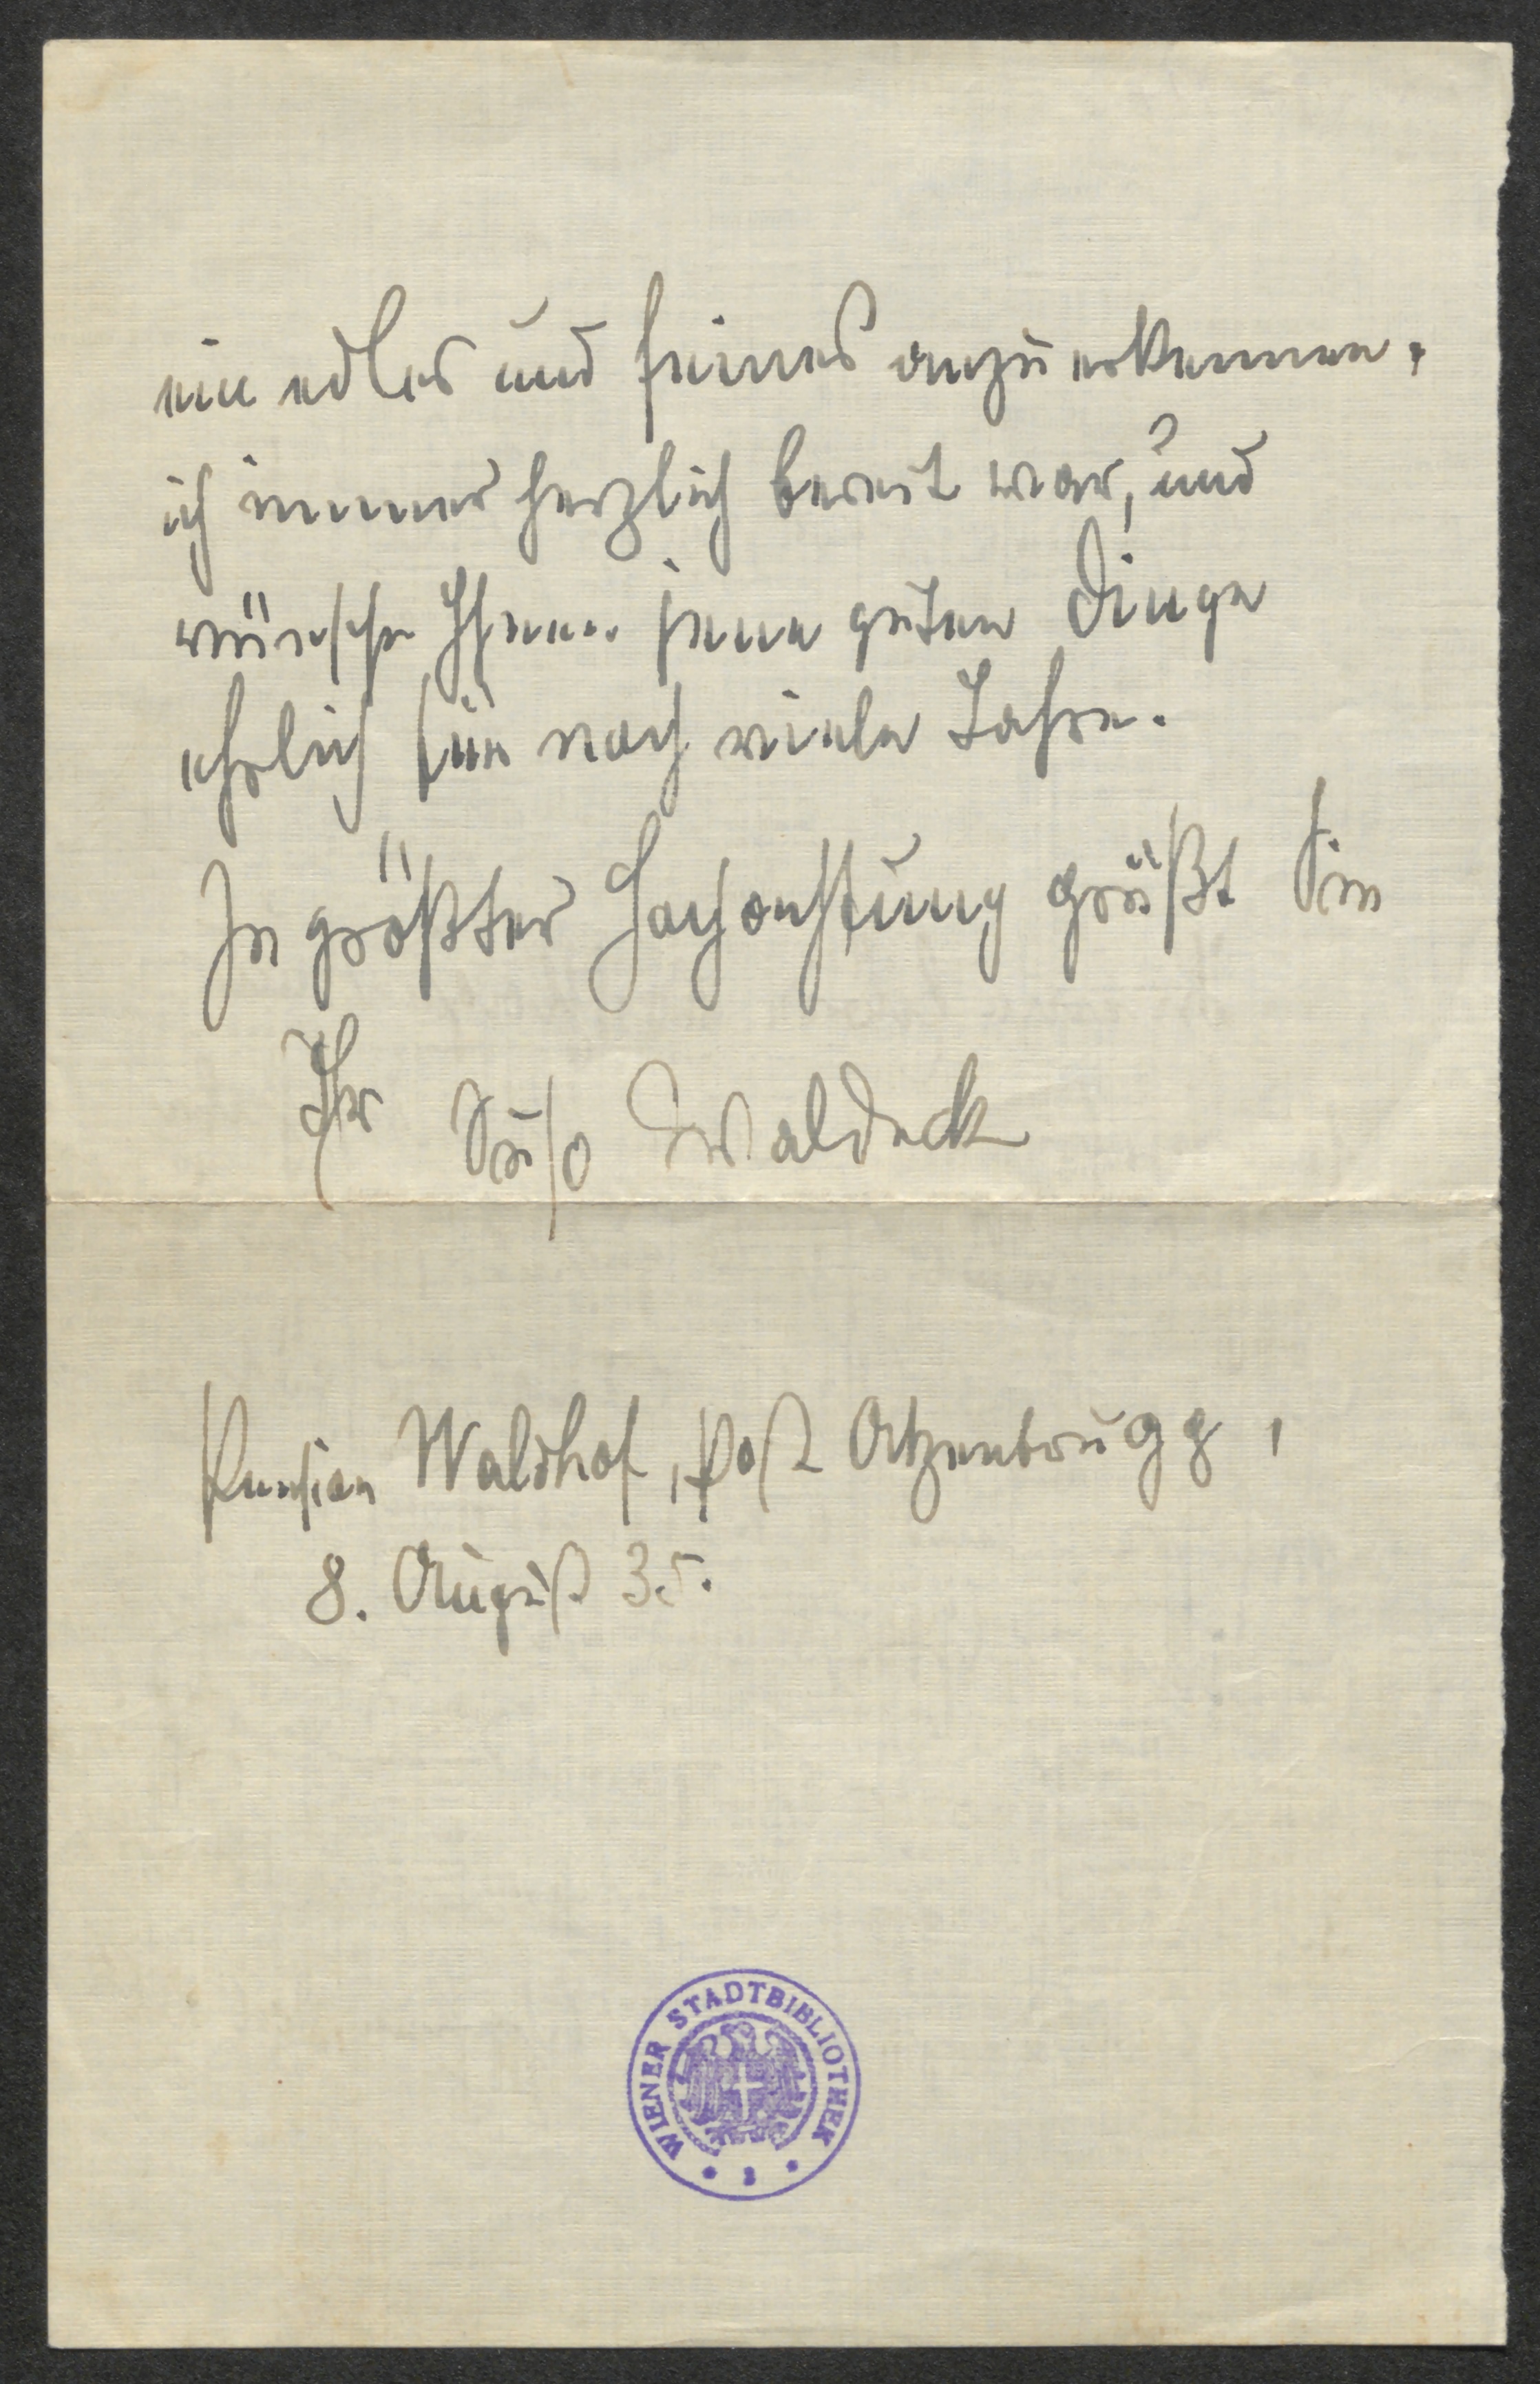 ein edles und feines anzuerkennen,
ich immer herzlich bereit war, und
wünsche Ihnen jene guten Dinge
ehrlich für noch viele Jahre.
In größter Hochachtung grüßt Sie
Ihr Suso Waldeck
Pension Waldhof, Post Atzenbrugg,
8. August 35.
WIENER STADTBIBLIOTHEK